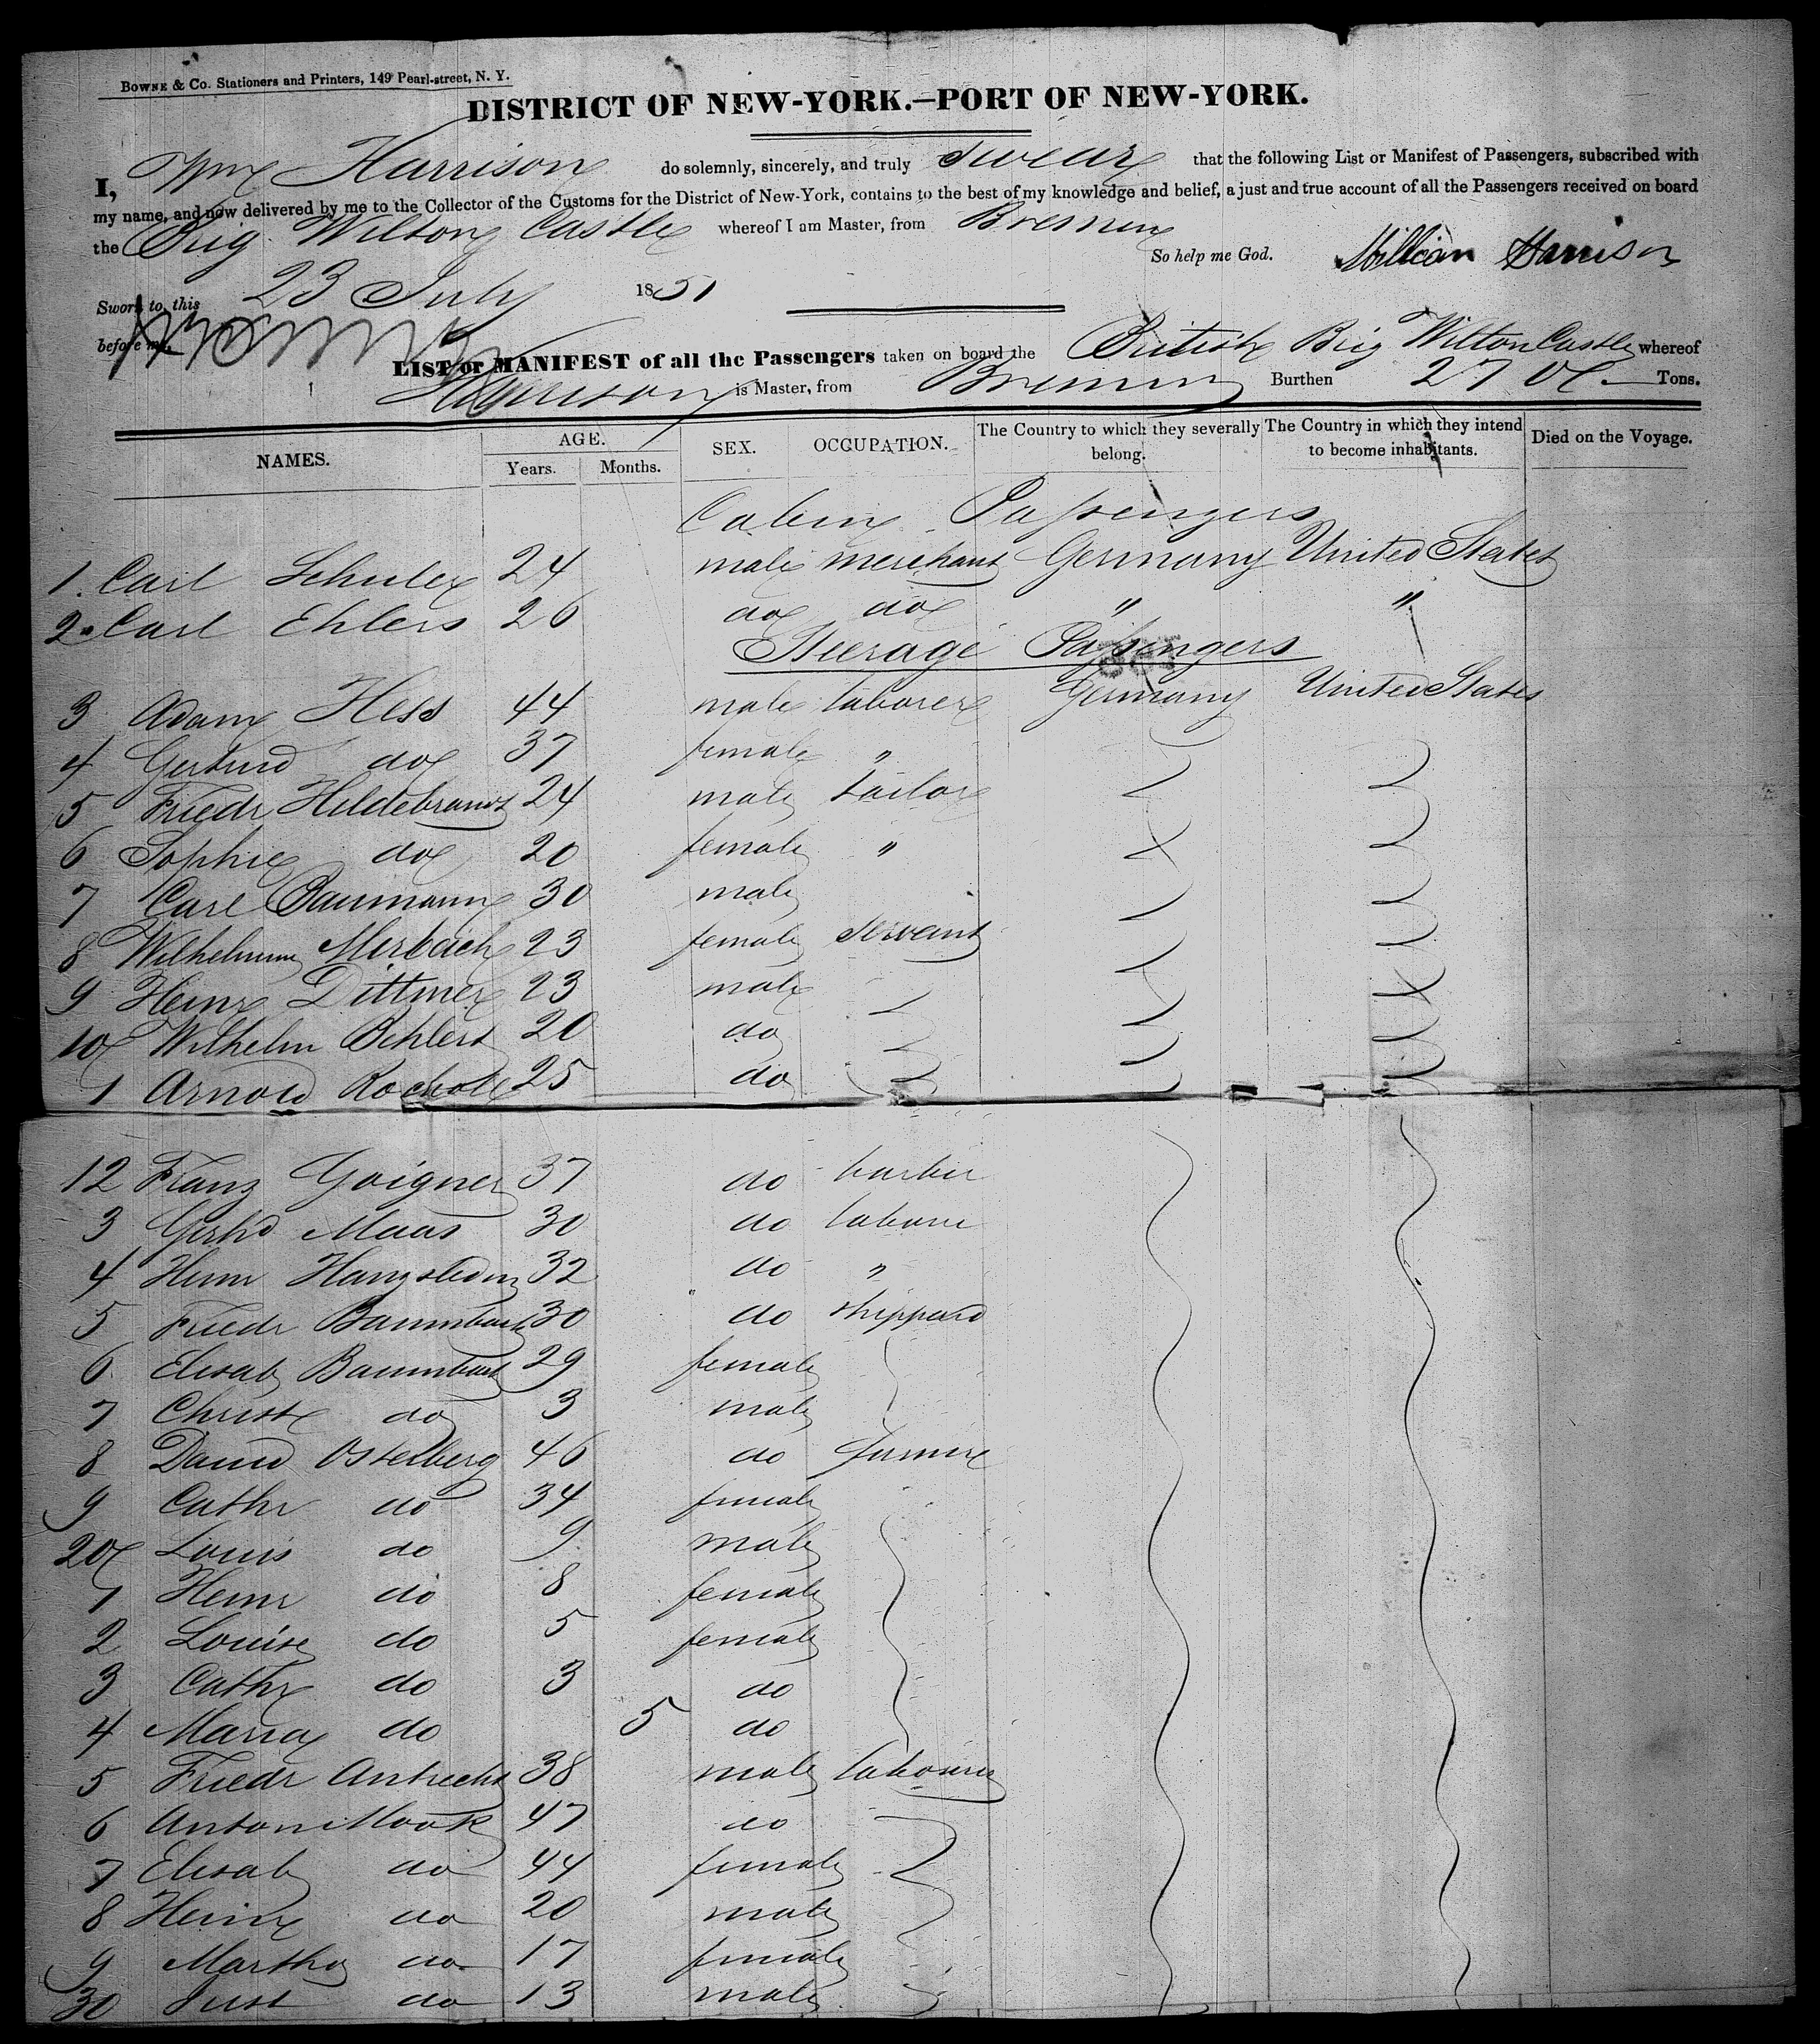 BOWNE & Co. Stationers and Printers, 149 Pearl-street, N. Y.
DISTRICT OF NEW-YORK.—PORT OF NEW-YORK.
I, Wm Harrison do solemnly, sincerely, and truly swear that the following List or Manifest of Passengers, subscribed with
my name, and now delivered by me to the Collector of the Customs for the District of New-York, contains to the best of my knowledge and belief, a just and true account of all the Passengers received on board
the Brig Wilton Castle whereof I am Master, from Bremen
So help me God. William Harrison
Sworn to, this 23 July 1851
before me,
LIST or MANIFEST of all the Passengers taken on board the British Brig Wilton Castle whereof
Harrison is Master, from Bremen Burthen 270 Tons.
NAMES. AGE. Years. Months. SEX. OCCUPATION. The Country to which they severally belong. The Country in which they intend to become inhabitants. Died on the Voyage.
Cabin Passengers
1. Carl Schuler 24 male merchant Germany United States
2. Carl Ehlers 26 do do " "
Steerage Passengers
3 Adam Hess 44 male laborer Germany United States
4 Gertrud do 37 female "
5 Friedr Hildebrandt 24 male tailor
6 Sophie do 20 female "
7 Carl Baumann 30 male
8 Wilhelmine Merbach 23 female servant
9 Heinr Dittmer 23 male
10 Wilhelm Behlert 20 do
1 Arnold Rocholl 25 do
12 Franz Goigner 37 do barber
3 Gerhd Maas 30 do laborer
4 Herm 32 do "
5 Friedr Baumbach 30 do shippard
6 Elisab Baumbach 29 female
7 Christ do 3 male
8 David Osterberg 46 do farmer
9 Cathr do 34 female
20 Louis do 9 male
1 Heinr do 8 female
2 Louise do 5 female
3 Cathr do 3 do
4 Maria do 5 do
5 Friedr Antrecht 38 male labourer
6 Anton Mook 47 do
7 Elisab do 44 female
8 Heinr do 20 male
9 Martha do 17 female
30 Just do 13 male